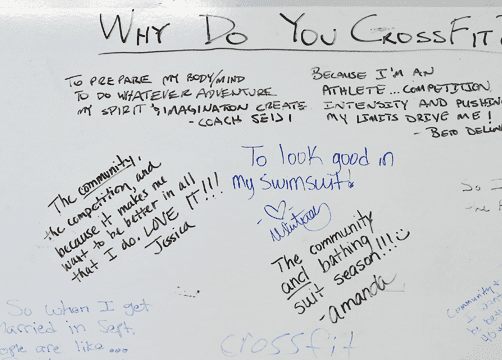 WHY DO YOU CROSSFIT?
TO PREPARE MY BODY/MIND
TO DO WHATEVER ADVENTURE
MY SPIRIT & IMAGINATION CREATE
- COACH SEIJI
BECAUSE I'M AN
ATHLETE... COMPETITION
INTENSITY AND PUSHING
MY LIMITS DRIVE ME!
- BETO
The community,
the competition, and
because it makes me
want to be better in all
that I do. LOVE IT!!!
Jessica
To look good in
my swimsuit!
The community
and bathing
suit season!!!
- amanda
So when I get
married in Sept.
people are like...
crossfit
Community